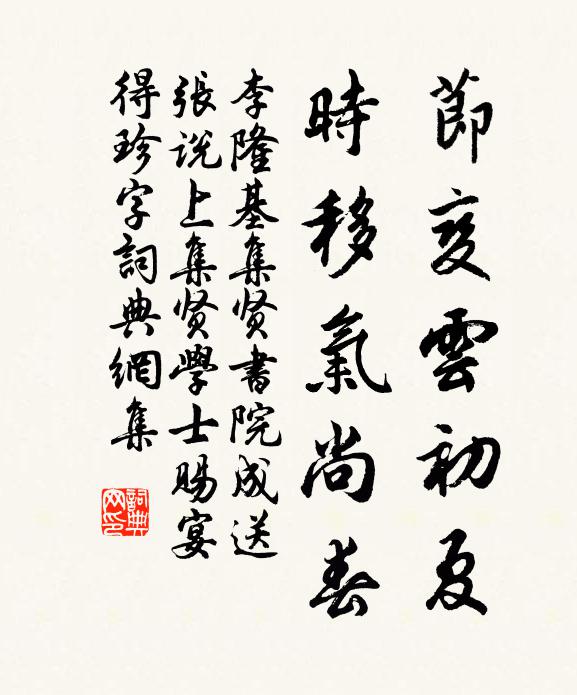 節变雲初夏
時移氣尚春
李隆基集贤書院成送
張说上集贤學士賜宴
得珍字詞典網集
詞典网印